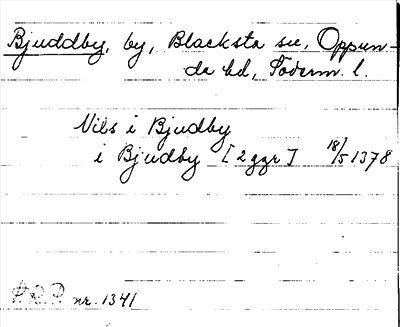 Bjuddby, by, Blacksta sn, Oppun-
da hd, Söderm. l.
Nils i Bjudby
i Bjudby [2 ggr] 18/5 1378
P.R.P. nr. 1341